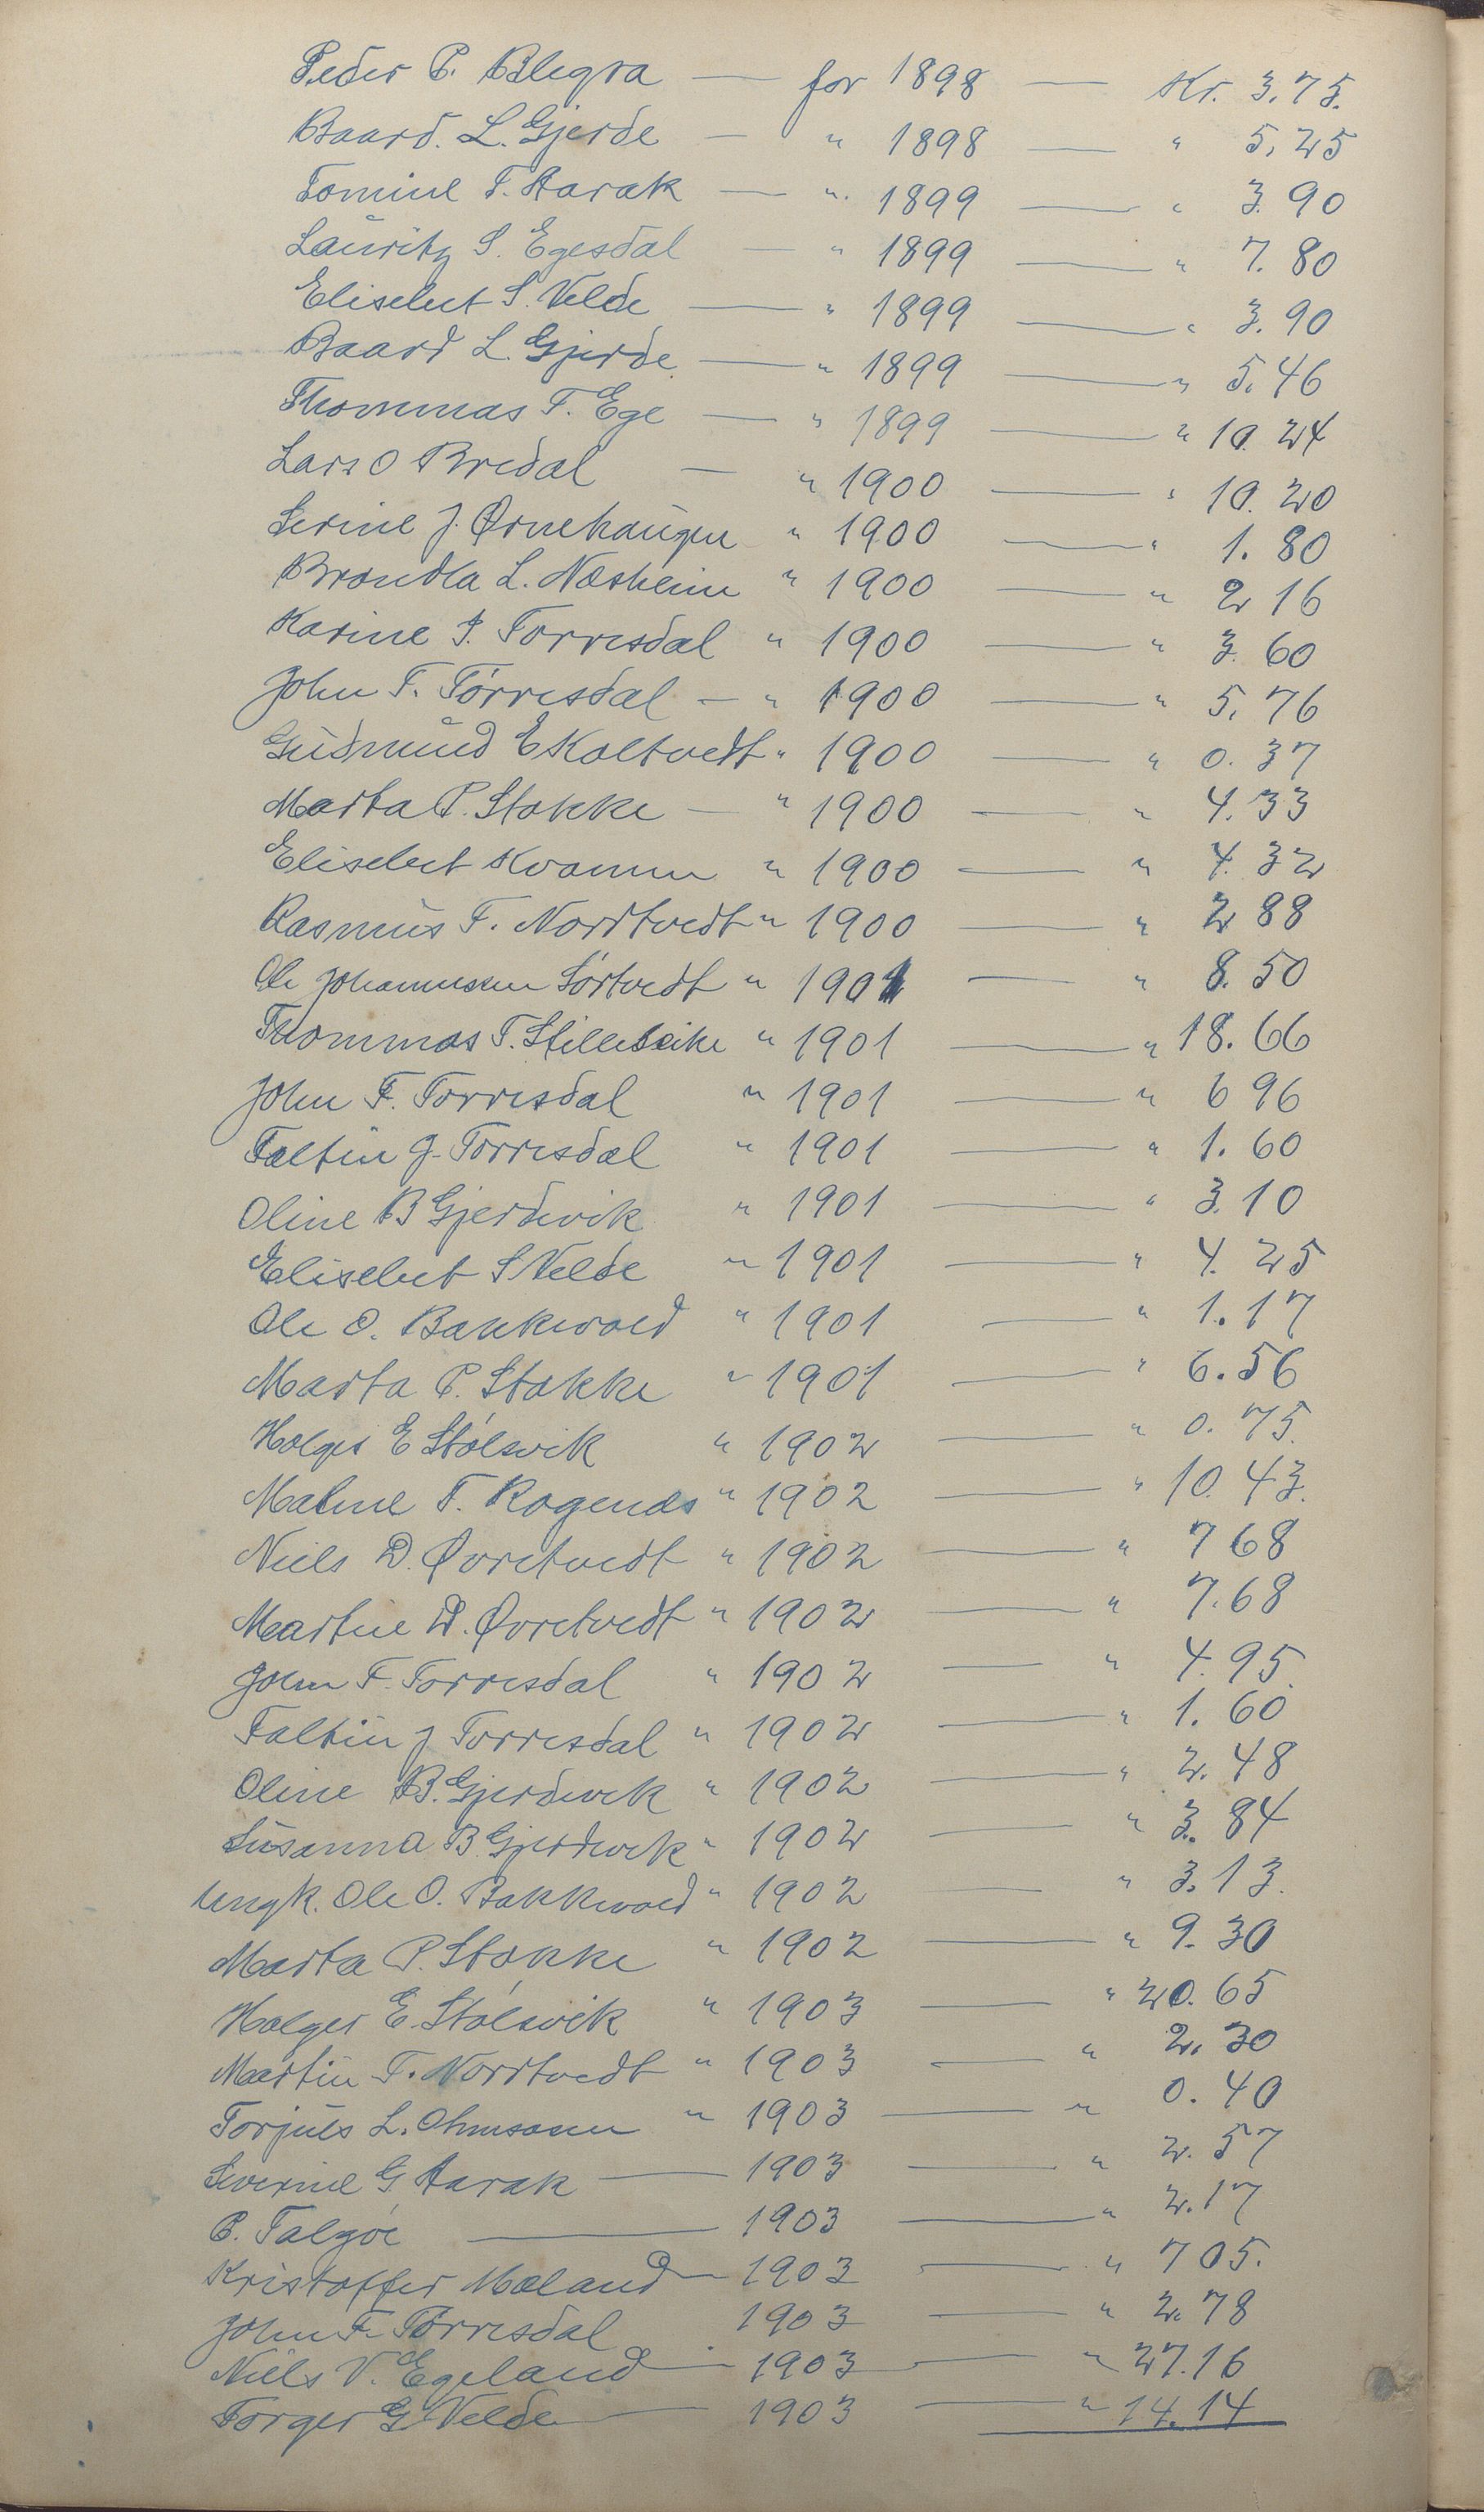 Peder P. Blegra — for 1898 — Kr. 3.75.
Baard. L. Gjerde — " 1898 — " 5,25
Tomine T. Aarak — " 1899 — " 3.90
Lauritz S. Egesdal — " 1899 — " 7.80
Elisebet S. Velde — " 1899 — " 3.90
Baard L. Gjerde — " 1899 — " 5.46
Thommas T. Ege — " 1899 — " 10.24
Lars O Bredal — " 1900 — " 10.20
Serine J. Ørnehaugen " 1900 — " 1.80
Brondla L. Næsheim " 1900 — " 2 16
Karine I. Torresdal " 1900 — " 3.60
John F. Tórresdal — " 1900 — " 5.76
Gudmund E Koltvedt " 1900 — " 0.37
Marta P. Stokke — " 1900 — " 4.33
Elisebet Kvamm " 1900 — " 4.32
Rasmus F. Nordtvedt " 1900 — " 2 88
Ole Johannessen Sörtvedt " 1901 — " 8.50
Thommas T. Stillebeike " 1901 — " 18.66
John F. Torresdal " 1901 — " 6 96
Faltin J. Torresdal " 1901 — " 1.60
Oline B Gjerdevik " 1901 — " 3.10
Elisebet S Velde " 1901 — " 4.25
Ole O. Bakkevold " 1901 — " 1.17
Marta P. Stokke " 1901 — " 6.56
Holger E Stólsvik " 1902 — " 0.75.
Maline T. Rogends " 1902 — " 10.43.
Niels D. Øvretvedt " 1902 — " 7 68
Martin D. Øvretvedt " 1902 — " 7.68
John F. Torresdal " 1902 — " 4.95
Faltin J Torresdal " 1902 — " 1.60
Oline B. Gjerdevik " 1902 — " 2.48
Susanna B Gjerdevik " 1902 — " 3.84
Ungk. Ole O. Bakkevold " 1902 — " 3.13.
Marta P. Stokke " 1902 — " 9.30
Holger E. Stólsvik " 1903 — " 20.65
Martin F. Nordtvedt " 1903 — " 2.30
Torjuls L. Omsosen " 1903 — " 0.40
Severine G Aarak — 1903 — " 2.57
P. Talgöe — 1903 — " 2.17
Kristoffer Mæland — 1903 — " 7 05.
John F. Torresdal 1903 — " 2.78
Niels V. Egeland — 1903 — " 27.16
Torger G Velde — 1903 — " 14.14